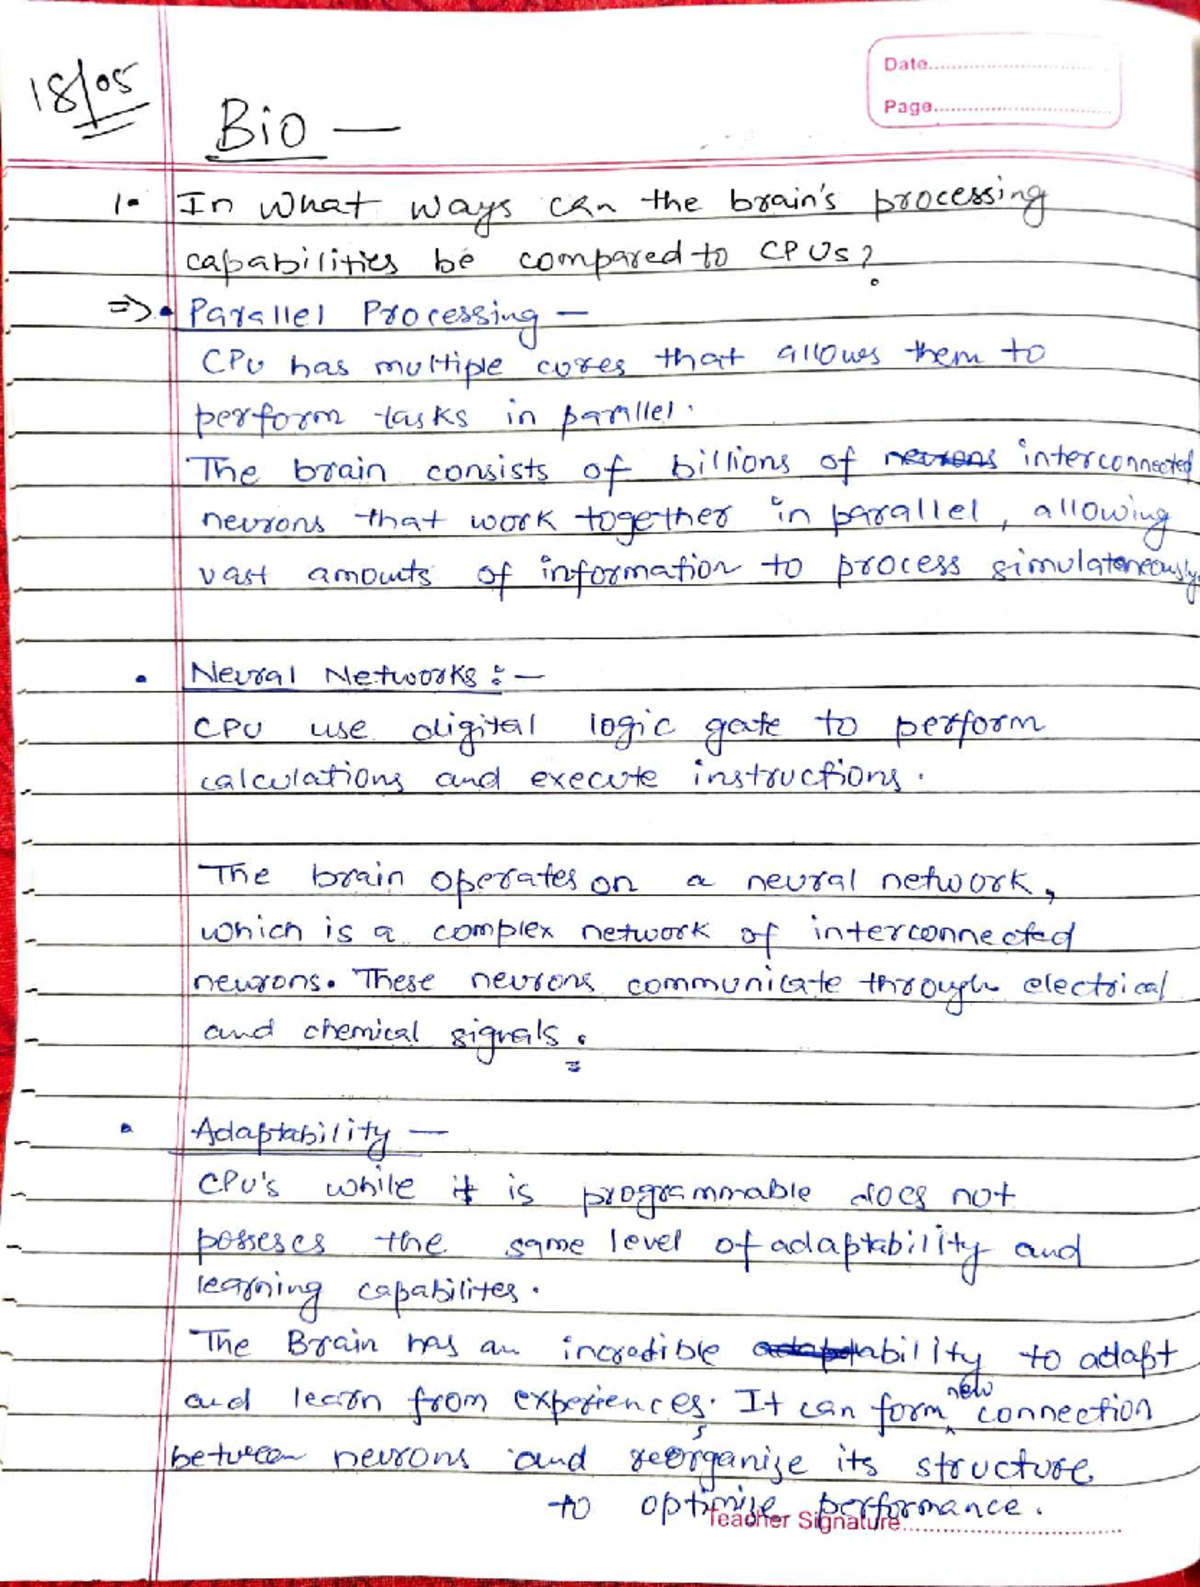 18/05
Date
Page
Bio —
1. In what ways can the brain's processing
capabilities be compared to CPUs?
=> • Parallel Processing —
CPU has multiple cores that allows them to
perform tasks in parallel.
The brain consists of billions of neurons interconnected
neurons that work together in parallel, allowing
vast amounts of information to process simulateneously.
• Neural Networks :-
CPU use digital logic gate to perform
calculations and execute instructions.
The brain operates on a neural network,
which is a complex network of interconnected
neurons. These neurons communicate through electrical
and chemical signals.
• Adaptability —
CPU's while it is programmable does not
posseses the same level of adaptability and
learning capabilites.
The Brain has an incredible ability to adapt
and learn from experiences. It can form new connection
between neurons and reorganize its structure
to optimise performance.
Teacher Signature